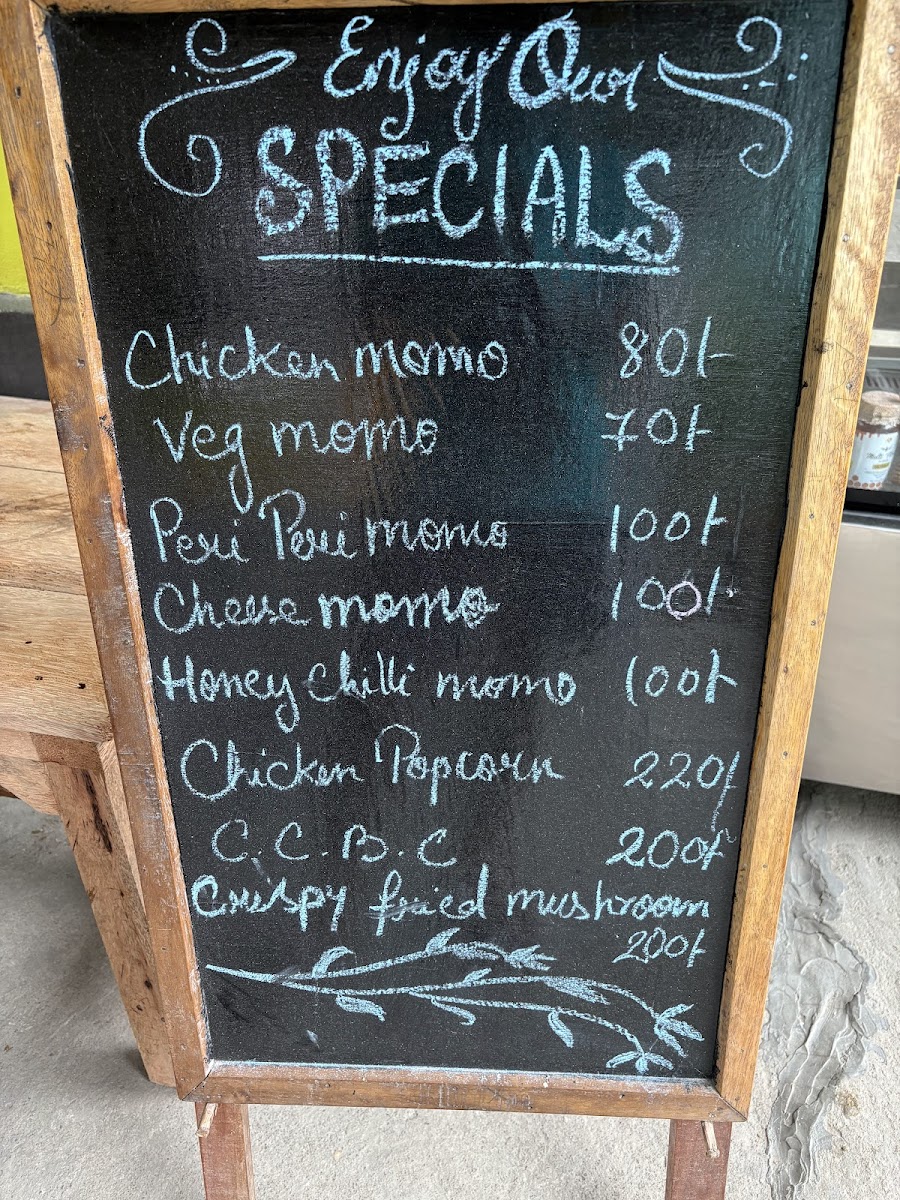 Enjoy Our
SPECIALS
Chicken momo 80/-
Veg momo 70/-
Peri Peri momo 100/-
Cheese momo 100/-
Honey Chilli momo 100/-
Chicken Popcorn 220/-
C.C.B.C 200/-
Crispy fried mushroom
200/-